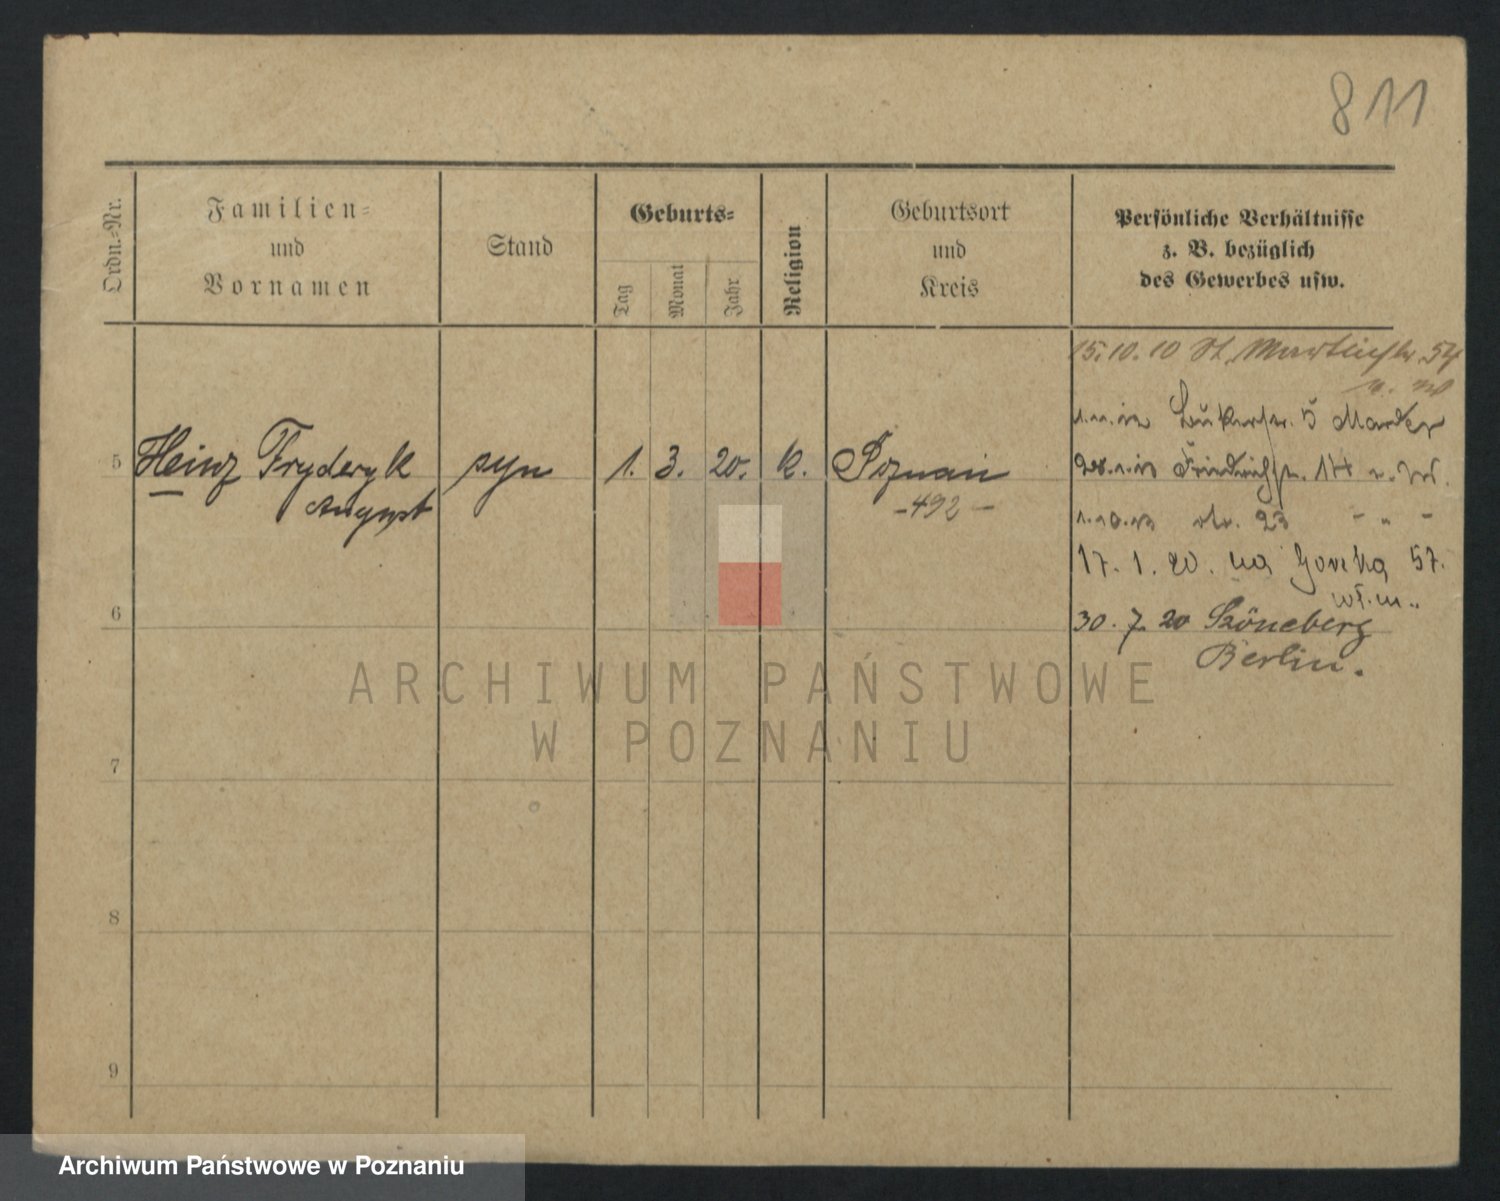 811
Ordn.-Nr.
Familien-
und
Vornamen
Stand
Geburts-
Tag
Monat
Jahr
Religion
Geburtsort
und
Kreis
Persönliche Verhältnisse
z. B. bezüglich
des Gewerbes usw.
15.10.10 St. Martinstr. 54
5 Heinz Fryderyk syn 1. 3. 20. k. Poznań
August
-492-
5 Mander
Friedrichstr. 14
23 - " -
17. 1. 20. na 57.
30. 7. 20 Szöneberg
Berlin.
6
7
8
9
ARCHIWUM PAŃSTWOWE
W POZNANIU
Archiwum Państwowe w Poznaniu